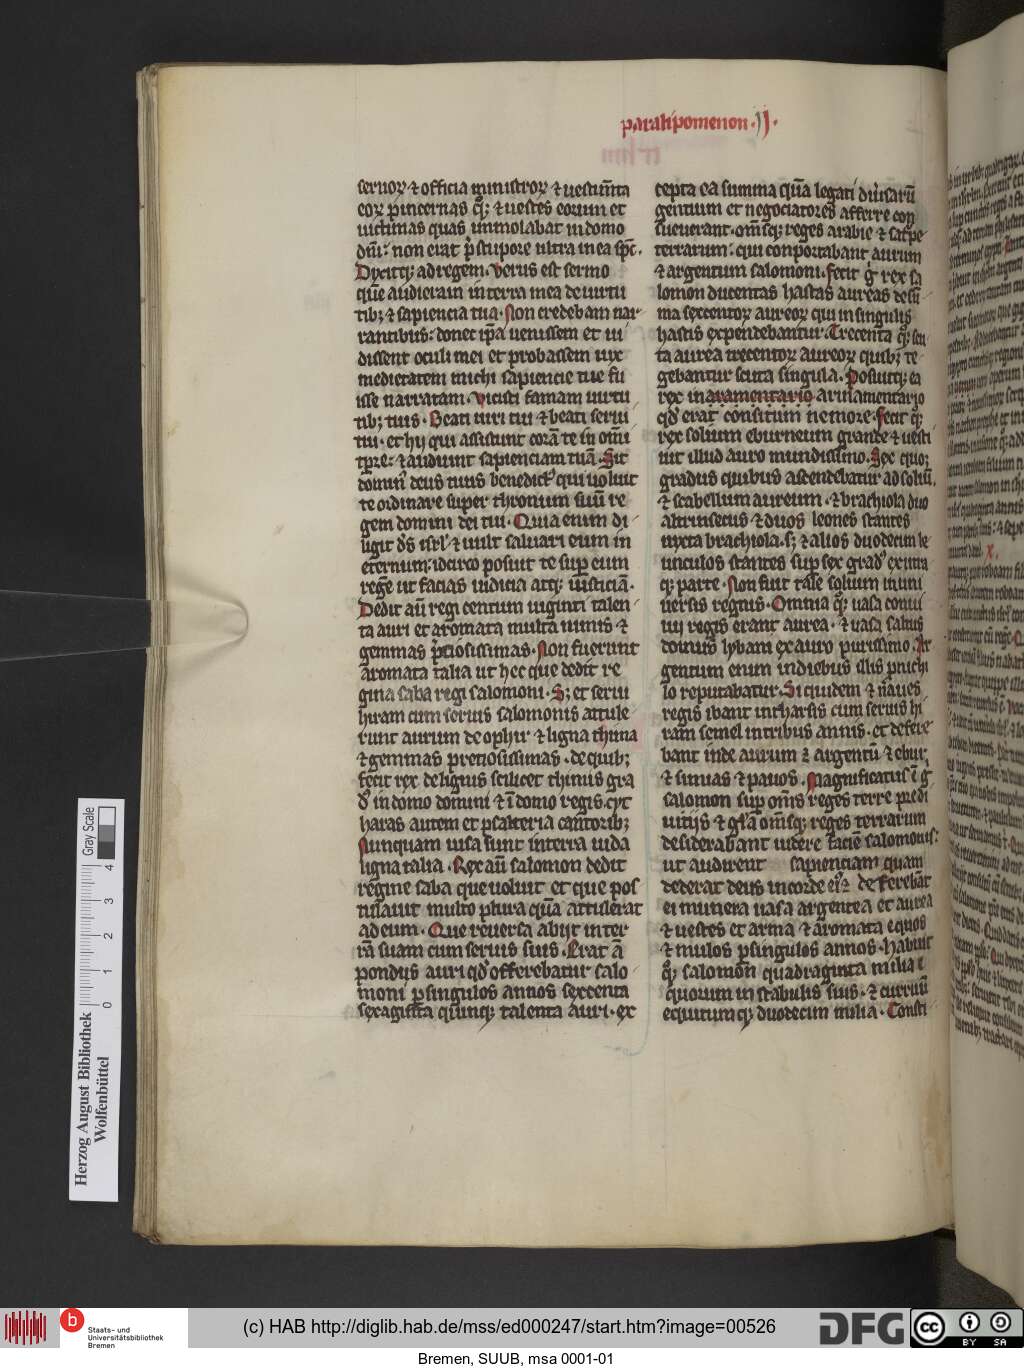 paralipomenon · II ·
seruoꝝ ⁊ officia ministroꝝ ⁊ uestim̄ta
eoꝝ pincernas qͦꝫ ⁊ uestes eorum et
uictimas quas immolabat in domo
dn̄i: non erat p̄ stupore ultra in ea sp̄c.
Dixitqꝫ ad regem. Verus est sermo
quē audieram in terra mea de uirtu
tibꝫ ⁊ sapiencia tua. Non credebam nar
rantibus: donec ip̄a uenissem et ui
dissent oculi mei et probassem uix
medietatem michi sapiencie tue fu
isse narratam. Vicisti famam uirtu
tibꝫ tuis. Beati uiri tui ⁊ beati serui
tui. et hij qui assistunt corā te ī om̄i
tp̄re: ⁊ audiunt sapienciam tuā. Sit
dominꝰ deus tuus benedictꝰ qui uoluit
te ordinare super thronum suū re
gem domini dei tui. Quia enim di
ligit dꝰs isrl̄ ⁊ uult saluari eum in
eternum: idcirco posuit te suꝑ eum
regē ut facias iudicia atqꝫ iusticiā.
Dedit aū regi centum uiginti talen
ta auri et aromata multa nimis ⁊
gemmas p̄ciosissimas. Non fuerunt
aromata talia ut hec que dedit re
gina saba regi salomoni. Sꝫ et serui
hiram cum seruis salomonis attule
runt aurum de ophir ⁊ ligna thina
⁊ gemmas preciosissimas. de quibꝫ
fecit rex de lignis scilicet thinis gra
dꝰ in domo domini ⁊ ī domo regis. cyt
haras autem et psalteria cātoribꝫ
Nunquam uisa sunt in terra iuda
ligna talia. Rex aū salomon dedit
regine saba que uoluit et que pos
tulauit multo plura quā attulerat
ad eum. Que reuersa abijt in ter
rā suam cum seruis suis. Erat ā
pondus auri qd̄ offerebatur salo
moni ꝑ singulos annos sexcenta
sexaginta quinqꝫ talenta auri. ex
cepta ea summa quā legati diuersarū
gentium et negociatores afferre con
sueuerant. om̄sqꝫ reges arabie ⁊ satꝑe
terrarum: qui conportabant aurum
⁊ argentum salomoni. fecit gͥ rex sa
lomon ducentas hastas aureas de sū
ma sexcentoꝝ aureoꝝ qui in singulis
hastis expendebantur. Trecenta qͦꝫ scu
ta aurea trecentoꝝ aureoꝝ quibꝫ te
gebantur scuta singula. Posuitqꝫ ea
rex in aramentario armamentario
qd̄ erat consitum nemore. fecit qͦꝫ
rex solium eburneum grande ⁊ uesti
uit illud auro mundissimo. Sex quoqꝫ
gradus quibus ascendebatur ad soliū.
⁊ scabellum aureum. ⁊ brachiola duo
altrinsecus ⁊ duos leones stantes
iuxta brachiola. sꝫ ⁊ alios duodecim le
unculos stantes suꝑ sex gradꝰ ex utra
qꝫ parte. Non fuit tale solium in uni
uersis regnis. Omnia qͦꝫ uasa conui
uij regis erant aurea. ⁊ uasa saltus
domus lybani ex auro purissimo. Ar
gentum enim in diebus illis ꝓ nichi
lo reputabatur. Si quidem ⁊ naues
regis ibant in tharsis cum seruis hi
ram semel in tribus annis. et defere
bant inde aurum ⁊ argentū ⁊ ebur
⁊ simias ⁊ pauos. Magnificatus ē gͥ
salomon suꝑ om̄s reges terre p̄ diui
uitijs ⁊ gl̄a om̄sqꝫ reges terrarum
desiderabant uidere faciē salomonis:
ut audirent sapienciam quam
dederat deus in corde eiꝰ ⁊ deferebāt
ei munera uasa argentea et aurea
⁊ uestes et arma ⁊ aromata equos
⁊ mulos ꝑ singulos annos. Habuit
qͦꝫ salomon quadraginta milia ī
quorum in stabulis suis. ⁊ curruū
equitumqꝫ duodecim milia. Consti
Herzog August Bibliothek
Wolfenbüttel
Gray Scale
0 1 2 3 4
b Staats- und
Universitätsbibliothek
Bremen
(c) HAB http://diglib.hab.de/mss/ed000247/start.htm?image=00526
DFG
cc BY SA
Bremen, SUUB, msa 0001-01